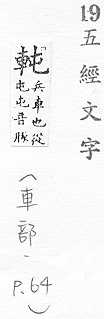 19
五經文字
軘
兵車也從
屯屯音豚
(車部、
P.64)